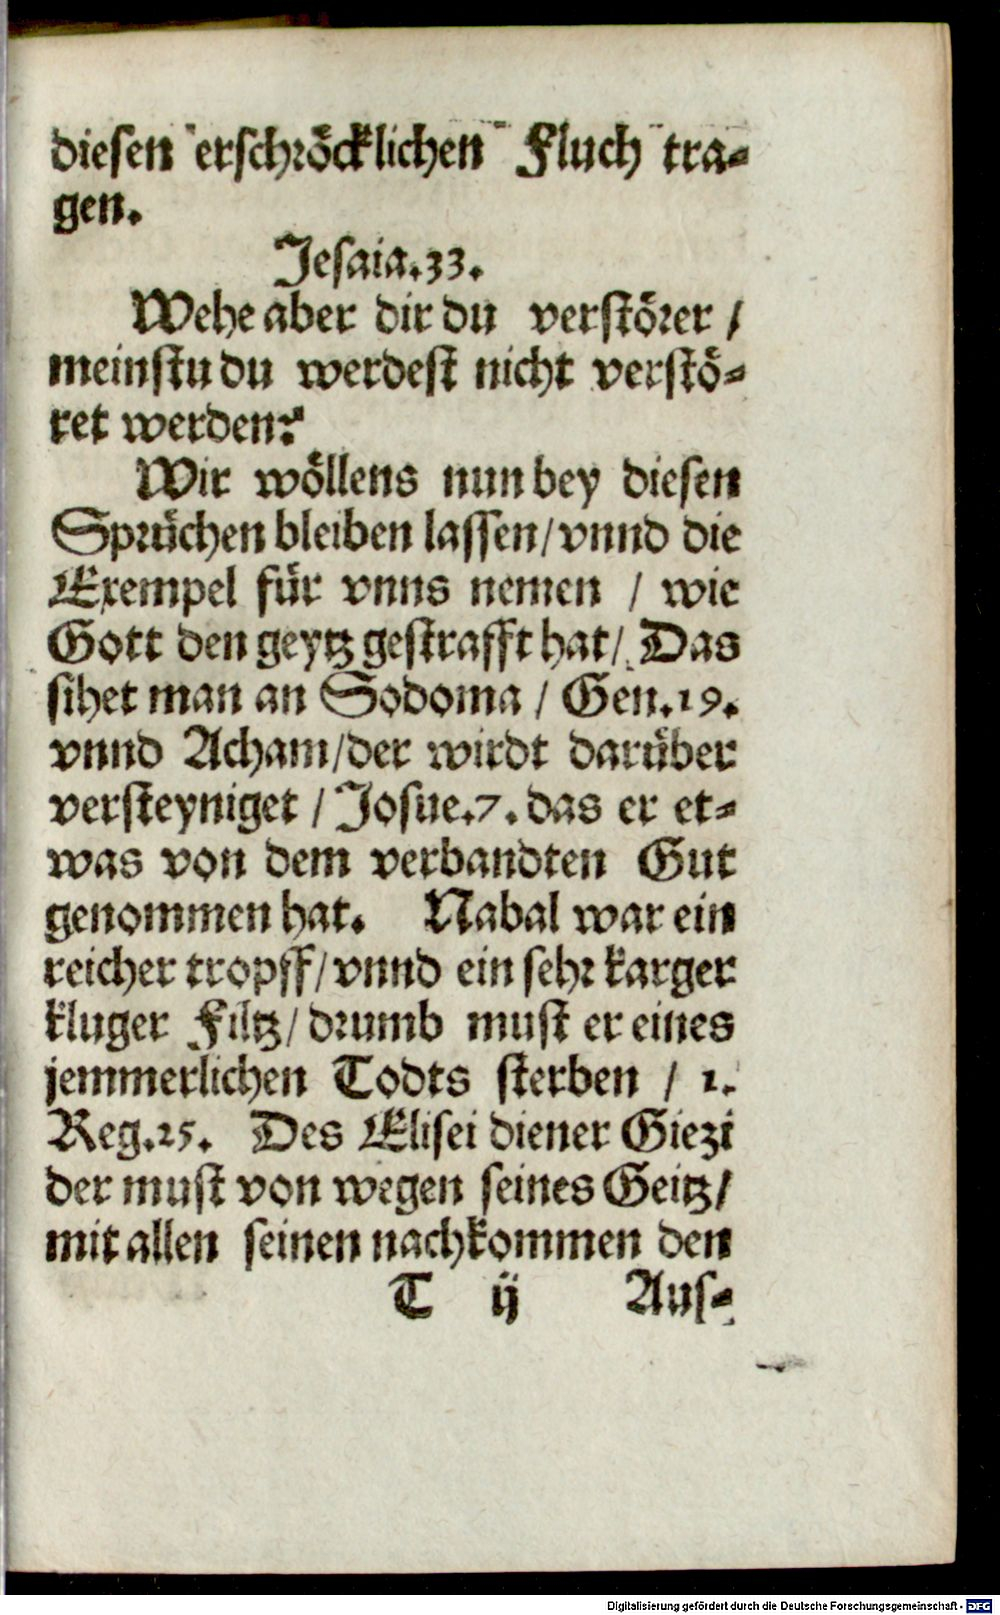 diesen erschröcklichen Fluch tra-
gen.
Jesaia.33.
Wehe aber dir du verstörer /
meinstu du werdest nicht verstö-
ret werden?
Wir wöllens nun bey diesen
Sprüchen bleiben lassen/vnnd die
Exempel für vnns nemen / wie
Gott den geytz gestrafft hat/ Das
sihet man an Sodoma / Gen.19.
vnnd Acham/der wirdt darüber
versteyniget / Josue.7. das er et-
was von dem verbandten Gut
genommen hat. Nabal war ein
reicher tropff/vnnd ein sehr karger
kluger Filtz/drumb must er eines
jemmerlichen Todts sterben / 1.
Reg.25. Des Elisei diener Giezi
der must von wegen seines Geitz/
mit allen seinen nachkommen den
T ij Aus-
Digitalisierung gefördert durch die Deutsche Forschungsgemeinschaft - DFG